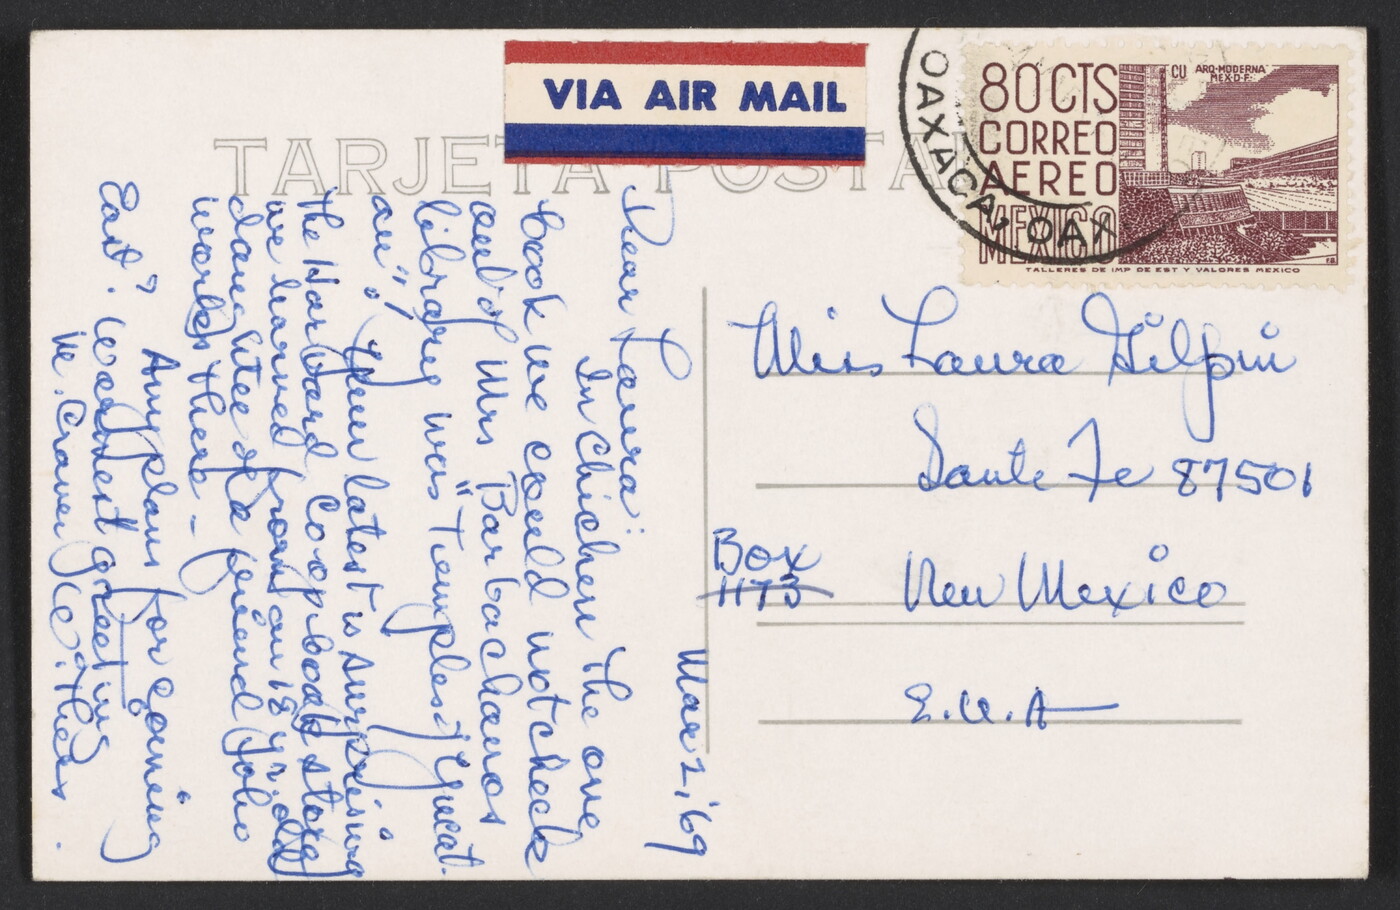 VIA AIR MAIL
TARJETA POSTAL
80 CTS
CORREO
AEREO
MEXICO
CU ARQ-MODERNA
MEX-D-F-
TALLERES DE IMP DE EST Y VALORES MEXICO
OAXACA, OAX
Mar 2, '69
Dear Laura:
In Chichen the one
book we could not check
out of Mrs Barbachanos
library was "Temples i Yucat-
an"!
Your latest is surprising
the Harvard Coop book store
we learned from an 18 yr. old
daughter of a friend who
works there -
Any plans for coming
East? Warmest greetings
M. Craver
Miss Laura Gilpin
Sante Fe 87501
Box
1173
New Mexico
E.U.A